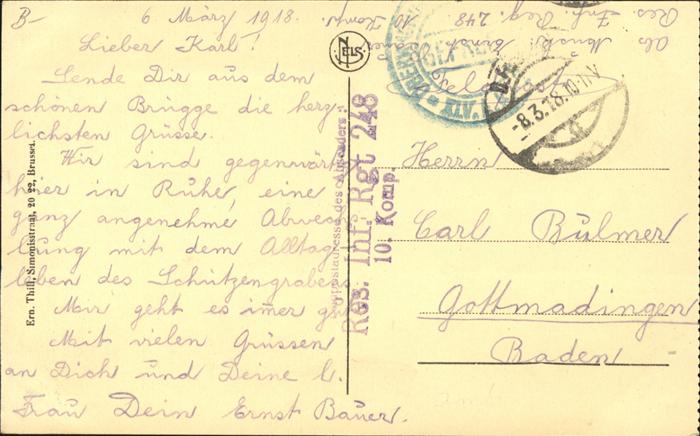 B-
6 März 1918.
Lieber Karl!
Sende Dir aus dem
schönen Brügge die herz-
lichsten Grüsse.
Wir sind gegenwärtig
hier in Ruhe, eine
ganz angenehme Abwechs-
lung mit dem Alltag
leben des Schützengrabens
Mir geht es imer gut
Mit vielen Grüssen
an Dich und Deine l.
Frau Dein Ernst Bauer.
Ern. Thill, Simonisstraat, 20 22, Brussel.
NELS
Res. Inf. Rgt 248
10. Komp.
Res. Inf. Reg. 248
10. Komp.
-8.3.18.10-11.V
Herrn
Carl Bulmer
Gottmadingen
Baden